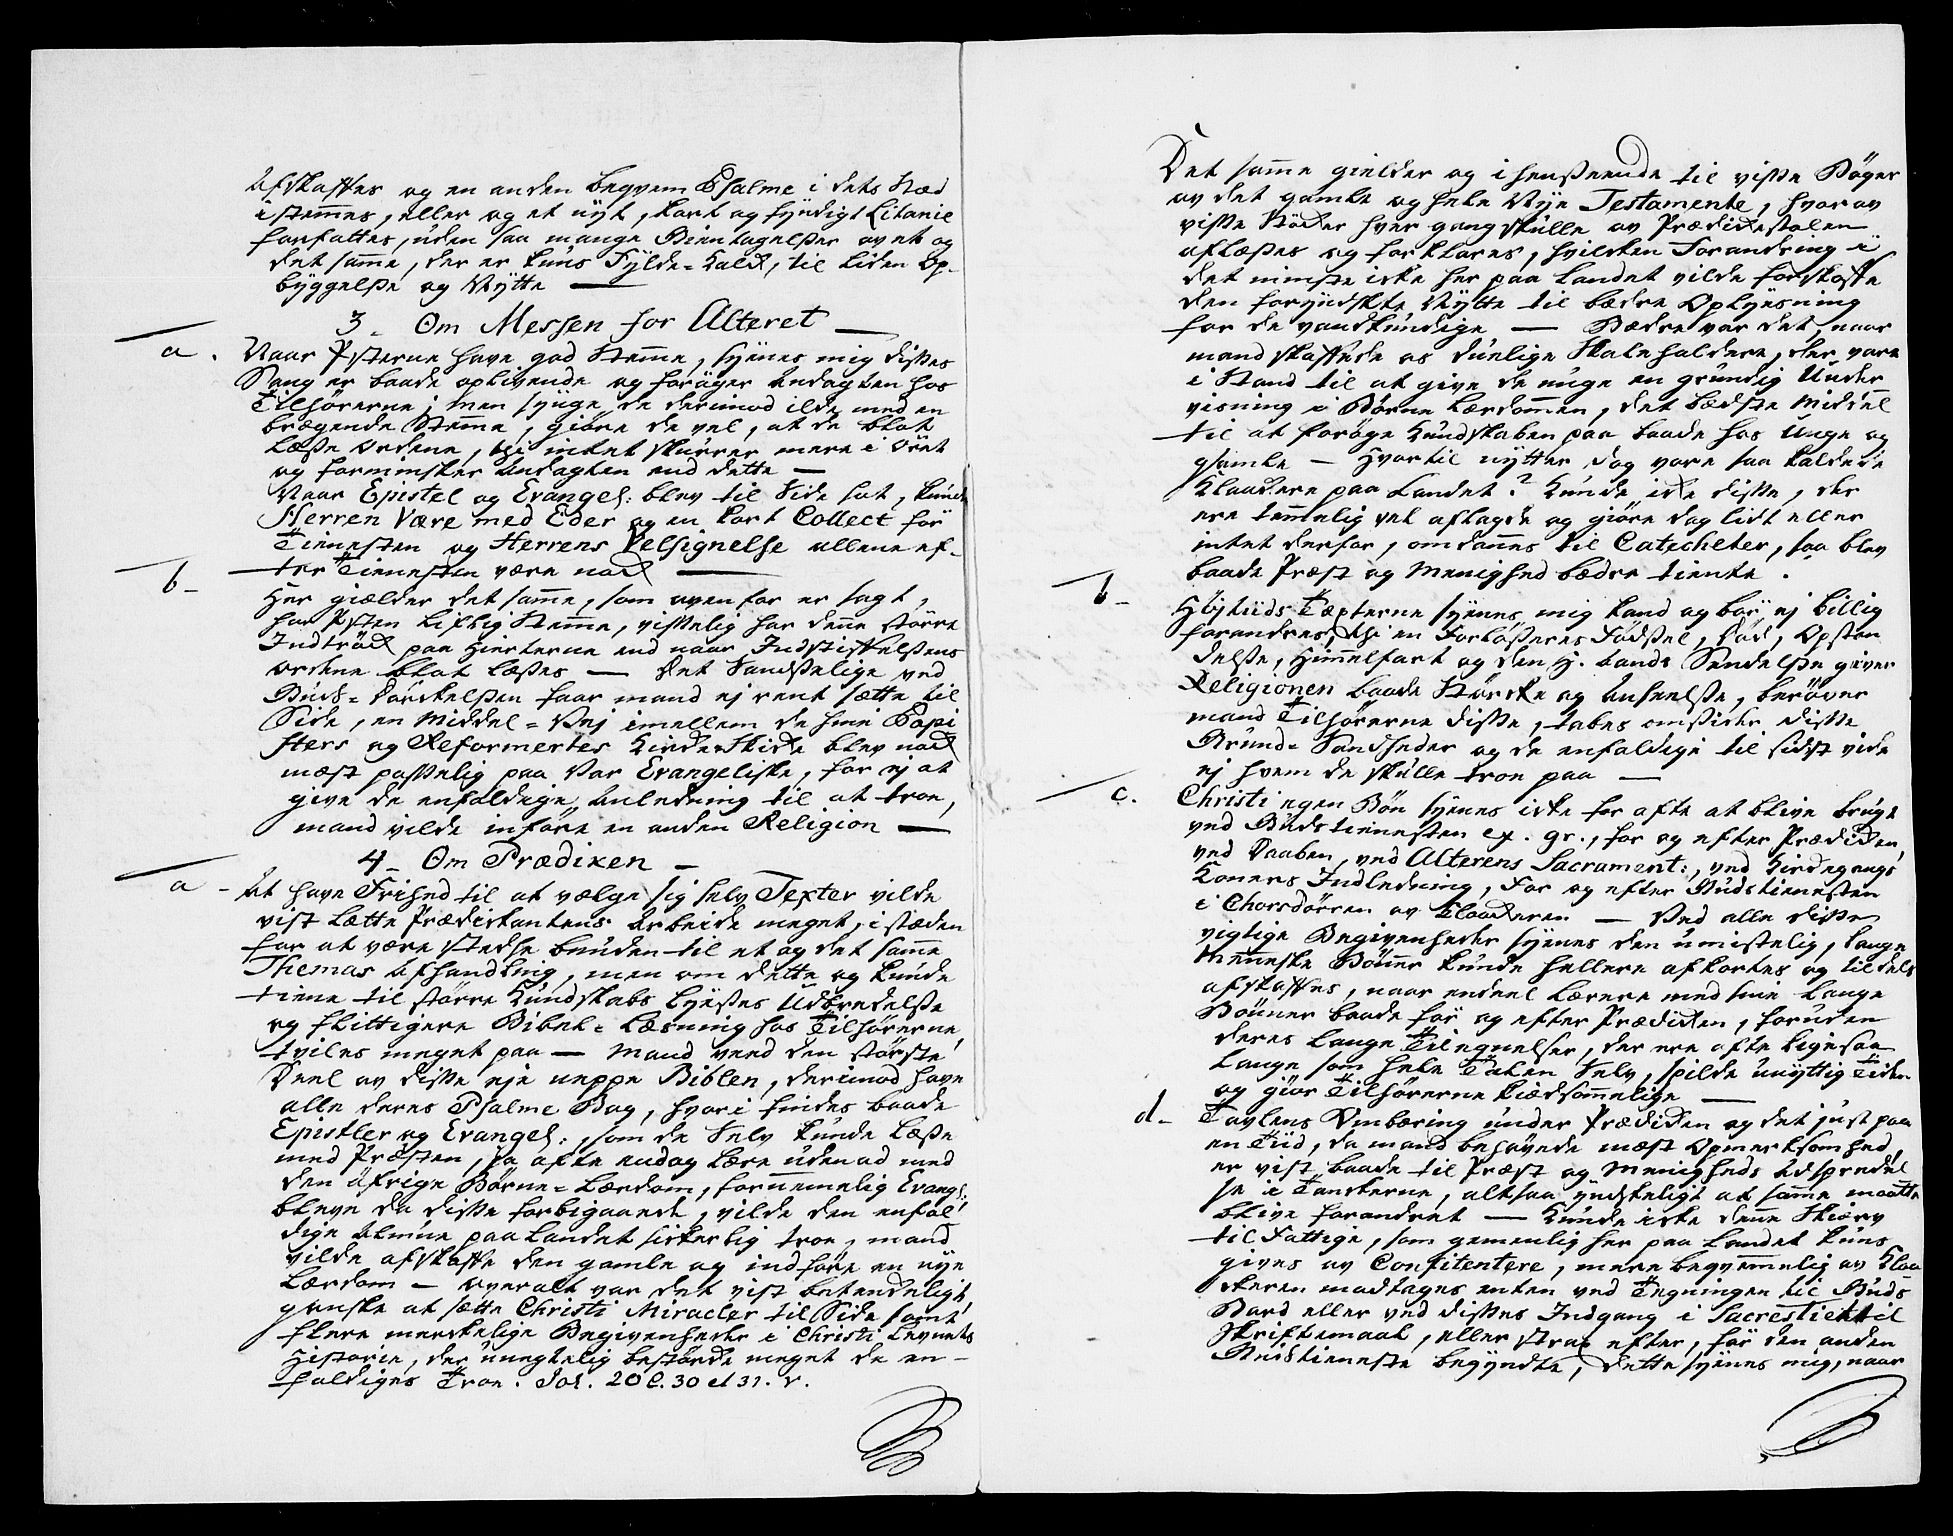 Afskaffes og en anden beqvem Psalme i dets Stæd
istemmes, eller og et nyt, kort og fyndigt Litanie
forfattes, uden saa mange Bientagelser av et og
det samme, der er kuns Fylde-Kald, til liden Op-
byggelse og Nytte —
3. Om Messen for Alteret —
a. Naar Præsterne have god Stemme, synes mig disses
Sang er baade oplivende og forøger Andagten hos
Tilhørerne; men siunge de derimod ilde med en
brægende Stemme, giøre de vel, at de blot
læse Ordene, thi intet skurrer mere i Øret
og forminsker Andagten end dette —
Naar Epistel og Evangel: blev til Side sat, kunde
Herren Være med Eder og en kort Collect för
Tienesten og Herrens Velsignelse allene ef-
ter Tienesten være nock —
b- Her gielder det samme, som oven for er sagt,
har Præsten liflig Stemme, visselig har denne større
Indtrÿck paa Hierterne end naar Indstiftelsens
Ordene blot læses — Det Sandselige ved
Guds-Dörkelsen faar mand ej rent sætte til
Side, en Middel-Vej imellem de sine Papi
sters og Reformertes Kirke-Skicke blev nock
mæst passelig paa Vor Evangeliske, for ej at
give de enfoldige Anledning til at troe,
mand vilde inføre en anden Religion —
4- Om Prædiken —
a- At have Frihed til at vælge sig selv Texter vilde
vist lætte Prædikantens Arbeide meget, i stæden
for at være stedse bunden til et og det samme
Themas Afhandling, men om dette og kunde
tiene til større Kundskabs Lyses Udbredelse
og flittigere Bibel-Læsning hos Tilhørerne,
tviles meget paa — Mand veed den største
Deel av disse eje neppe Biblen, derimod have
alle deres Psalme Bog, hvori findes baade
Epistler og Evangel:, som de Selv kunde læse
med Præsten, ja ofte endog lære uden ad med
den øfrige Börne-Lærdom, fornemmelig Evangel:
bleve da disse forbigaaede, vilde den enfol-
dige Almue paa Landet sikkerlig troe, mand
vilde afskaffe den gamle og indføre en nye
Lærdom — Overalt var det vist betenkeligt,
ganske at sætte Christi Miracler til Side samt
flere merkelige Begivenheder i Christi Levnets
Historie, der unegtelig bestörke meget de en-
foldiges Troe. Joh. 20 C. 30 et 31. v.
Det samme gielder og i henseende til visse Bøger
av det gamle og hele Nye Testamente, hvorav
visse Støcker hver gang skulle av Prædickestolen
aflæses og forklares, hvilken Forandring i
det minste icke her paa Landet vilde forskaffe
den forynskte Nytte til bædre Oplysning
for de vandkundige — Bædre var det, naar
mand skaffede os duelige Skoleholdere, der vare
i Stand til at give de unge en grundig Under
visning i Børne Lærdommen, det bædste Middel
til at forøge Kundskaben paa baade hos Unge og
gamle — Hvortil nytter dog vore saa kaldede
Klockere paa Landet? Kunde icke disse, der
ere temmelig vel aflagde og giøre dog lidt eller
intet derfor, omdannes til Catecheter, saa blev
baade Præst og Menighed bædre tiente.
b- Højtiids Texterne synes mig kand og bör ej billig
forandres, thi en Forløseres Fødsel, Død, Opstan
delse, Himmelfart og den H. Aands Sendelse giver
Religionen baade Störcke og Anseelse, berøver
mand Tilhørerne disse, tabes omsider disse
Grund-Sandheder og de enfoldige til sidst vide
ej hvem de skulle troe paa —
c. Christi egen Bön synes icke for ofte at blive brugt
ved Gudstienesten ex. gr., för og efter Prædiken,
ved Daaben, ved Alterens Sacrament:, ved Kirkegangs
Koners Indledning, För og efter Gudstienesten
i Chorsdørren av Klockeren — Ved alle disse
vigtige Begivenheder synes den umistelig, lange
Menneske Bönner kunde hellere afkortes og til dels
afskaffes, naar endeel Lærere med sine lange
Bönner baade för og efter Prædiken, foruden
deres lange Tilegnelser, der ere ofte ligesaa
lange som hele Talen Selv, spilde unyttig Tiden
og giör Tilhørerne kiedsommelige —
d- Tavlens Ombæring under Prædiken og det just paa
en Tiid, da mand behøvede mæst Opmerksomhed,
er vist baade til Præst og Menigheds Adspredel
se i Tankerne, altsaa ynskeligt at samme maatte
blive forandret — Kunde icke denne Skierv
til Fattige, som gemenlig her paa Landet kuns
gives av Confitentere, mere beqvemmelig av Klo
ckeren modtages enten ved Tegningen til Guds
Bord eller ved disses Indgang i Sacrestiet til
Skriftemaal, eller strax efter, för den anden
Gudstieneste begyndte, dette synes mig, naar